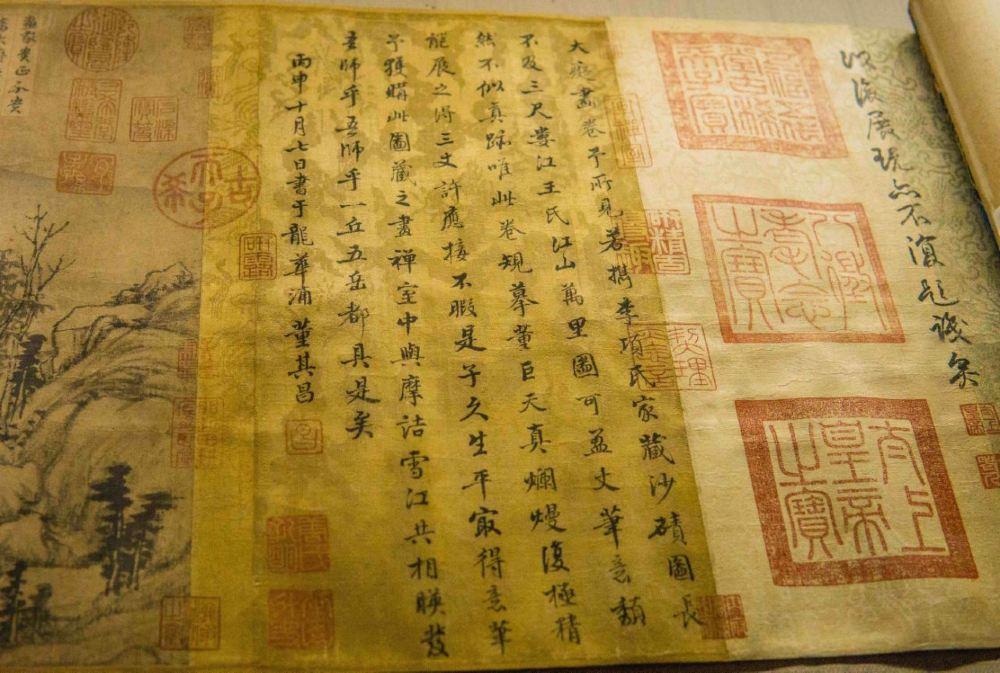 以後展玩亦不復題識矣
五福五代堂古稀天子寶
八徵耄念之寶
太上皇帝之寶
大癡畫卷予所見若檇李項氏家藏沙磧圖長
不及三尺婁江王氏江山萬里圖可盈丈筆意頹
然不似真跡唯此卷規摹董巨天真爛熳復極精
能展之得三丈許應接不暇是子久生平最得意筆
予獲購此圖藏之畫禪室中與摩詰雪江共相映發
吾師乎吾師乎一丘五岳都具是矣
丙申十月七日書于龍華浦董其昌
古希天子